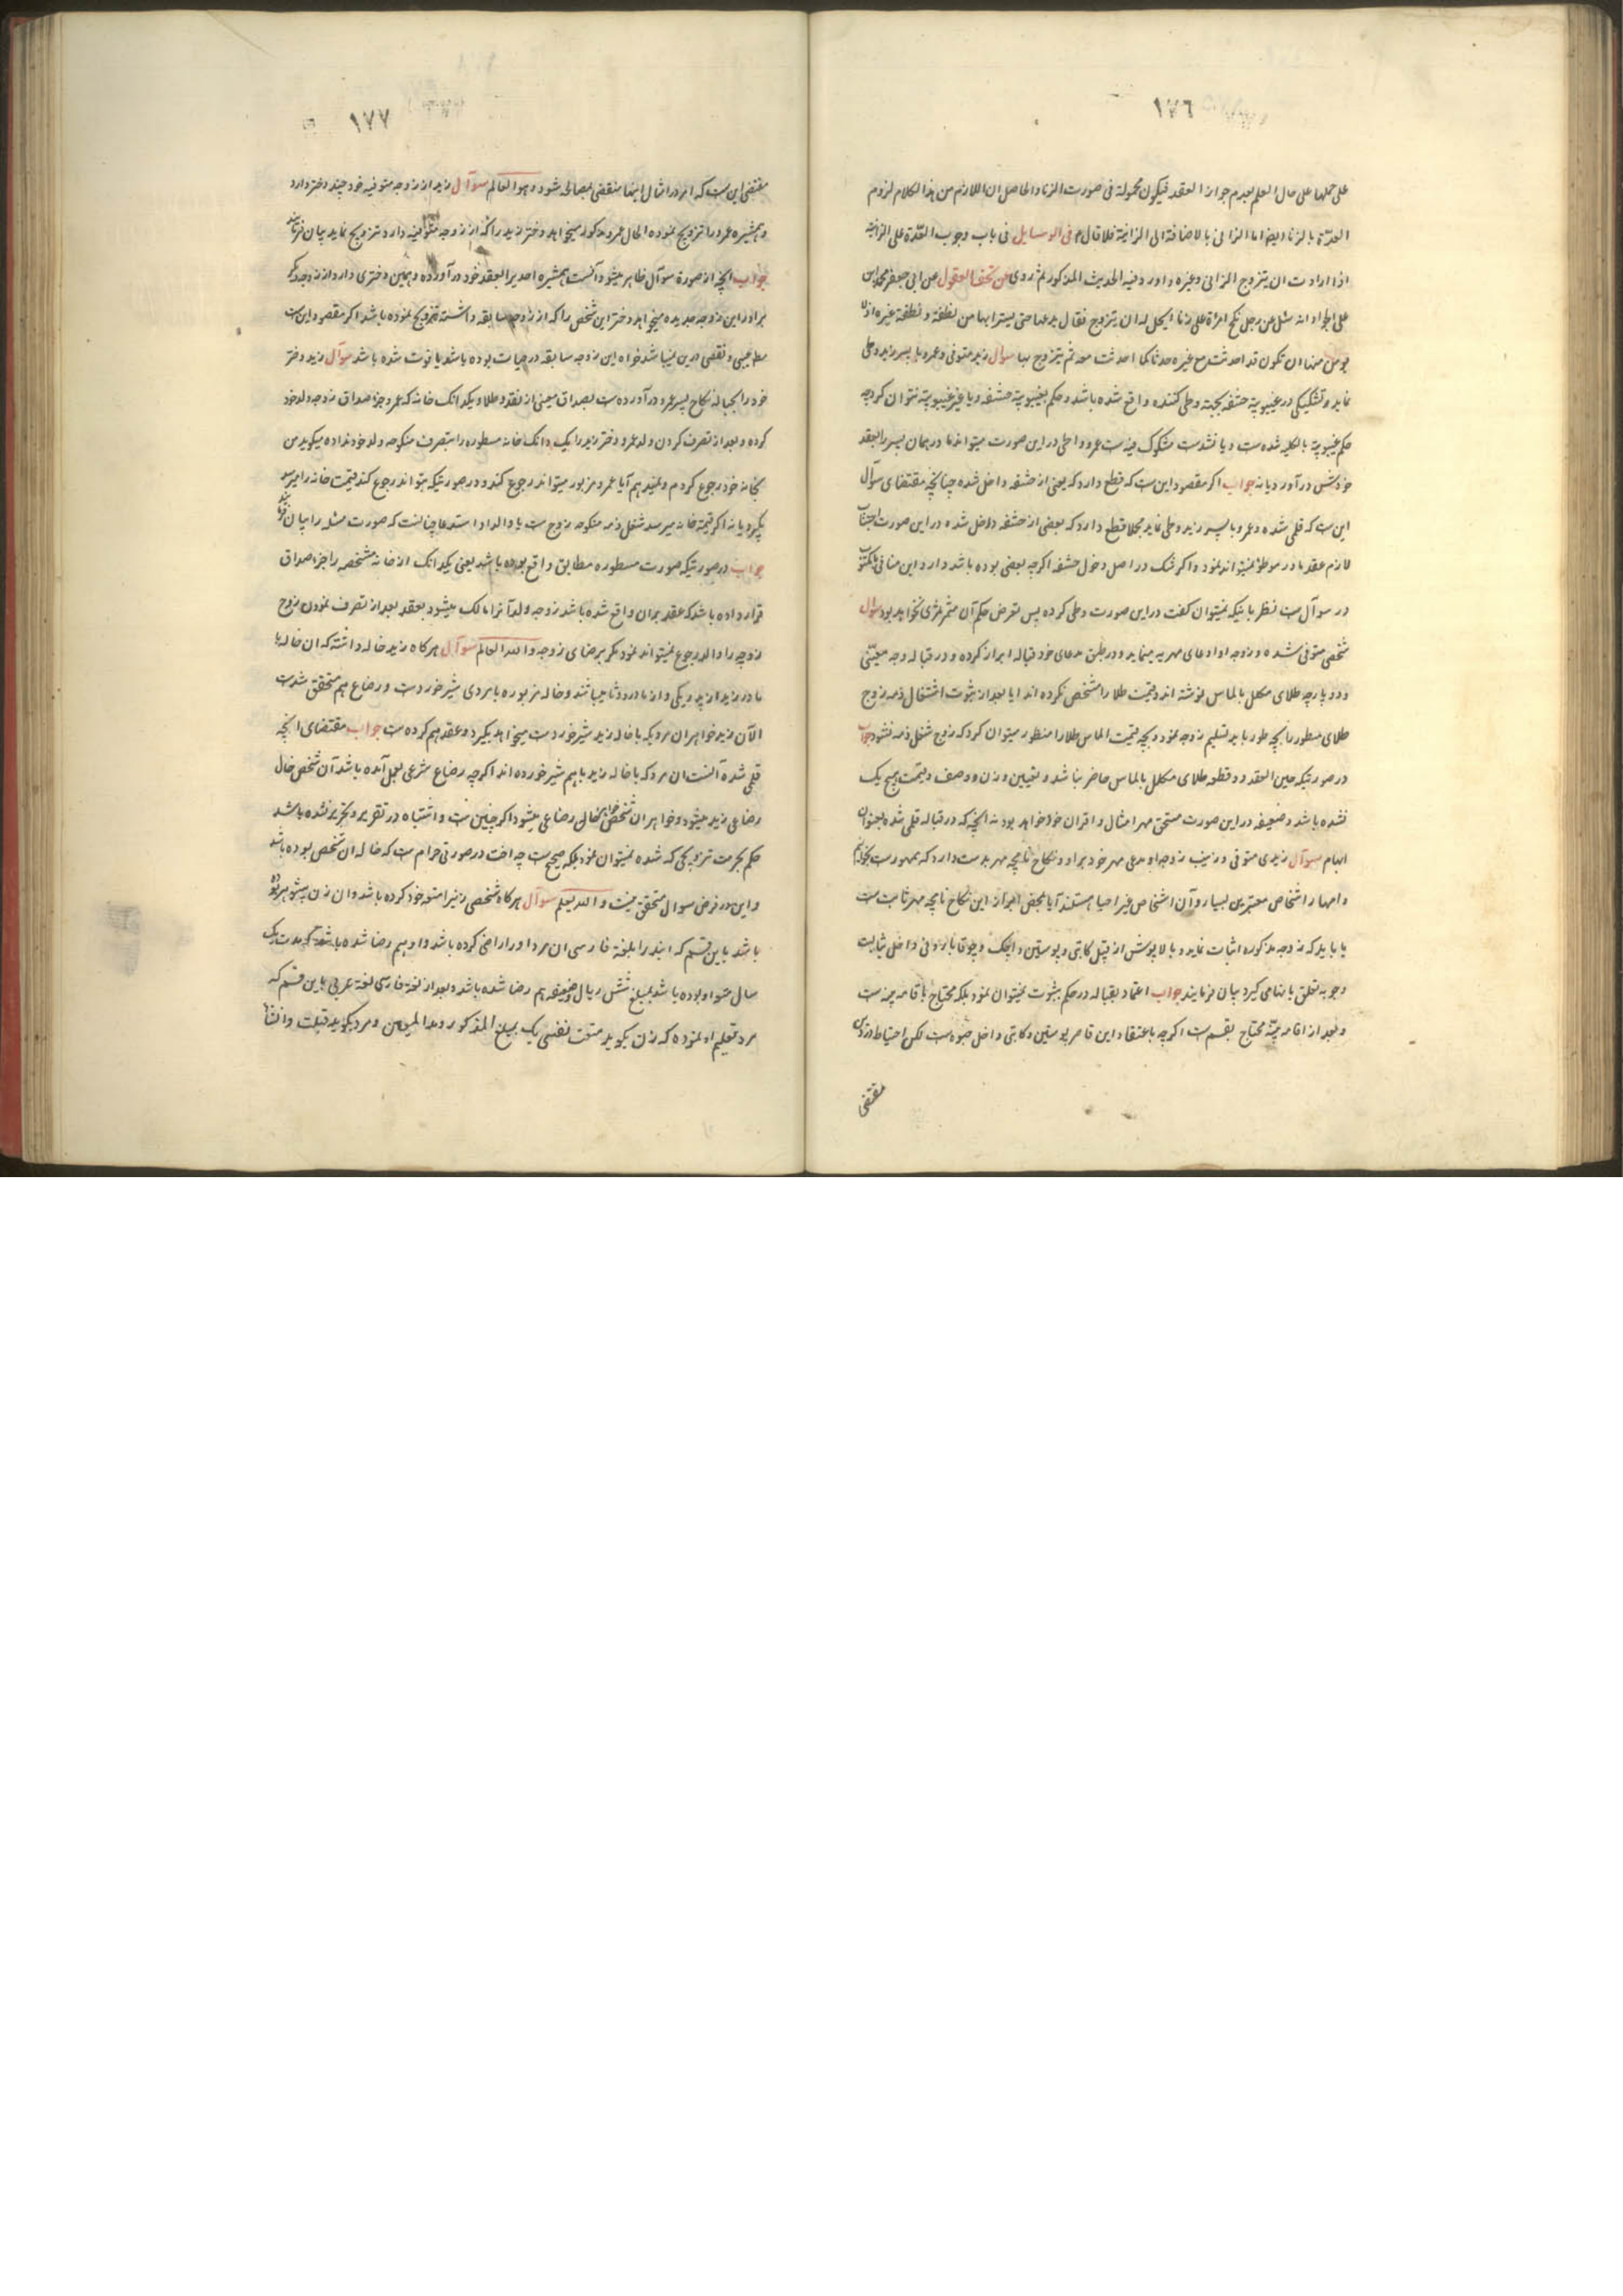 ١٧٦
على حملها على حال العلم بعدم جواز العقد فيكون محمولة فى صورت الزنا والحاصل ان اللازم من هذا الكلام لزوم
العدّة بالزنا ايضا اما الزانى بالاضافة الى الزانية فلا قال فى الوسايل فى باب وجوب العدّة على الزانية
اذا ارادت ان يتزوج الزانى وغيره واورد فيه الحديث المذكور ثم روى عن تحف العقول عن ابى جعفر محمد ابن
على الجواد انه سئل عن رجل نكح امرأة على زنا ايحل له ان يتزوج فقال يدعها حتى يستبرأبها من نطفته و نطفة غيره اذ لا
يومن منها ان تكون قد احدثت مع غيره حدثا كما احدثت معه ثم يتزوج بها سوال زيد متوفى وعمرو با پسر زيد وطى
نمايد وتشكيكى در غيبوبة حشفه بجهته وطى كننده واقع شده باشد و حكم بغيبوبة حشفه ويا غير غيبوبة نتوان كرد چه
حكم غيبوبة بالكليه شده ست ويا نشدست مشكوك فيه ست عمرو واطى در اين صورت ميتواند مادر همان پسر را بعقد
خودش در آورد يا نه جواب اگر مقصود اين ست كه قطع دارد كه يعنى از حشفه داخل شده چنانچه مقتضاى سوآل
اين ست كه قلمى شده وعمرو با پسر زيد وطى نمايد محلا قطع دارد كه بعضى از حشفه داخل شده در اين صورت اجتناب
لازم عقد مادر موطؤ نميتواند نمود واگر شك در اصل دخول حشفه اگرچه بعضى بوده باشد دارد اين منافى با مكتوب
در سوآل ست نظر باينكه نميتوان گفت در اين صورت وطى كرده پس تعرض حكم آن مثمر ثمرى نخواهد بود سوال
شخصى متوفى شده و زوجه او ادعاى مهريه مينمايد و در طبق مدعاى خود قباله ابراز كرده و در قباله وجه معيّنى
و دو پارچه طلاى مكلل بالماس نوشته اند و قيمت طلا را مشخص نكرده اند ايا بعد از ثبوت اشتغال ذمه زوج
طلاى مسطور را بچه طور بايد تسليم زوجه نمود و بچه قيمت الماس طلا را منظور ميتوان كرد كه زوج شغل ذمه نشود جواب
در صورتيكه حين العقد دو قطعه طلاى مكلل بالماس حاضر نباشد و تعيين وزن و وصف و قيمت هيچ يك
نشده باشد و ضعيفه در اين صورت مستحق مهر امثال و اقران خود خواهد بود نه انچه كه در قباله قلمى شده بعنوان
ابهام سوآل زيدى متوفى و زينب زوجه او مدعى مهر خود بر او و نكاح نامچه مهر بدست دارد كه ممهورست
و امهار اشخاص معتبرين بسيار و آن اشخاص غير احيا هستند آيا بمحض ابراز اين نكاح نامچه مهر ثابت ست
يا بايد كه زوجه مذكوره اثبات نمايد و بالاپوش از قبيل كاتبى و پوستين و داخل ثياب
وجو به تعلق يا بنمامى گيرد بيان فرمايند جواب اعتماد بقباله در حكم بثبوت نميتوان نمود بلكه محتاج باقامه بينه ست
و بعد از اقامه بيّنه محتاج بقسم ست اگرچه باعتقاد اين قاصر پوستين و كاتبى داخل حبوه ست لكن احتياط در
مقتضى
١٧٧
مقتضى اين ست كه امر در امثال اينها منقضى بمصالحه شود و هو العالم سوآل زيد از زوجه متوفيه خود چند دختر دارد
و همشيره عمرو را تزويج نموده الحال عمرو مذكور ميخواهد دختر زيد را كه از زوجه متوفيه دارد تزويج نمايد بيان فرمائيد
جواب انچه از صورة سوآل ظاهر ميشود آنست همشيره احد برا بعقد خود در آورده و همين دخترى دارد از زوجه ديگر
برادر اين زوجه جديده ميخواهد دختر اين شخص را كه از زوجه سابقه داشته تزويج نموده باشد اگر مقصود اين ست
مطلقا عيبى و نقصى در ين نميباشد خواه اين زوجه سابقه در حيات بوده باشد يا فوت شده باشد سوآل زيد دختر
خود را بحباله نكاح پسر عمرو در آورده ست بصداق معينى از نقد و طلا و يكدانك خانه كه عمرو جزء صداق زوجه ولد خود
كرده و بعد از تصرف كردن ولد عمرو دختر زيد را يك دانك خانه مسطوره را بتصرف منكوحه ولد خود نداده ميگويد من
بخانه خود رجوع كردم و نميدهم آيا عمرو مزبور ميتواند رجوع كند و در صورتيكه بتواند رجوع كند قيمت خانه را ميرسد
بگيرد يا نه اگر قيمة خانه ميرسد شغل ذمه منكوحه زوج ست يا والد او استدعا چنانست كه صورت مسئله را بيان فرمايند
جواب در صورتيكه صورت مسطوره مطابق واقع بوده باشد يعنى يكدانك از خانه مشخصه را جزء صداق
قرار داده باشد كه عقد بران واقع شده باشد زوجه ولد آنرا مالك ميشود بعقد بعد از تصرف نمودن زوج
زوجه را والد رجوع نميتواند نمود مگر برضاى زوجه و الله العالم سوآل هرگاه زيد خاله داشته كه ان خاله با
مادر زيد از پدر يكى و از مادر دوتا ميباشند و خاله مزبوره با مردى شير خوردست و رضاع هم متحقق شدست
الآن زيد خواهران مرديكه با خاله زيد شير خوردست ميخواهد بگيرد و عقد هم كرده ست جواب مقتضاى انچه
قلمى شده آنست ان مرد كه با خاله زيد باهم شير خورده اند اگرچه رضاع شرعى بعمل آمده باشد آن شخص خال
رضاعى زيد ميشود و خواهران شخص خال رضاعى ميشود اگر چنين ست و اشتباه در تقرير و تحرير نشده باشد
حكم بحرمت تزويجى كه شده نميتوان نمود بلكه صحيح ست چه اخت در صورتى حرام ست كه خاله ان شخص بوده باشد
و اين در فرض سوال متحقق نيست و الله يعلم سوآل هرگاه شخصى زنيرا متعه خود كرده باشد و ان زن بيشوهر بوده
باشد باين قسم كه ابتدا بلغة فارسى ان مرد او را راضى كرده باشد و او هم رضا شده باشد كه مدت يك
سال متعه او بوده باشد بمبلغ شش ريال و ضعيفه هم رضا شده باشد و بعد از لغة فارسى لغة عربى باين قسم كه
مرد تعليم او نموده كه زن بگويد متعت نفسى بك بمبلغ المذكور و مدا المعين و مرد بگويد قبلت و انشاء